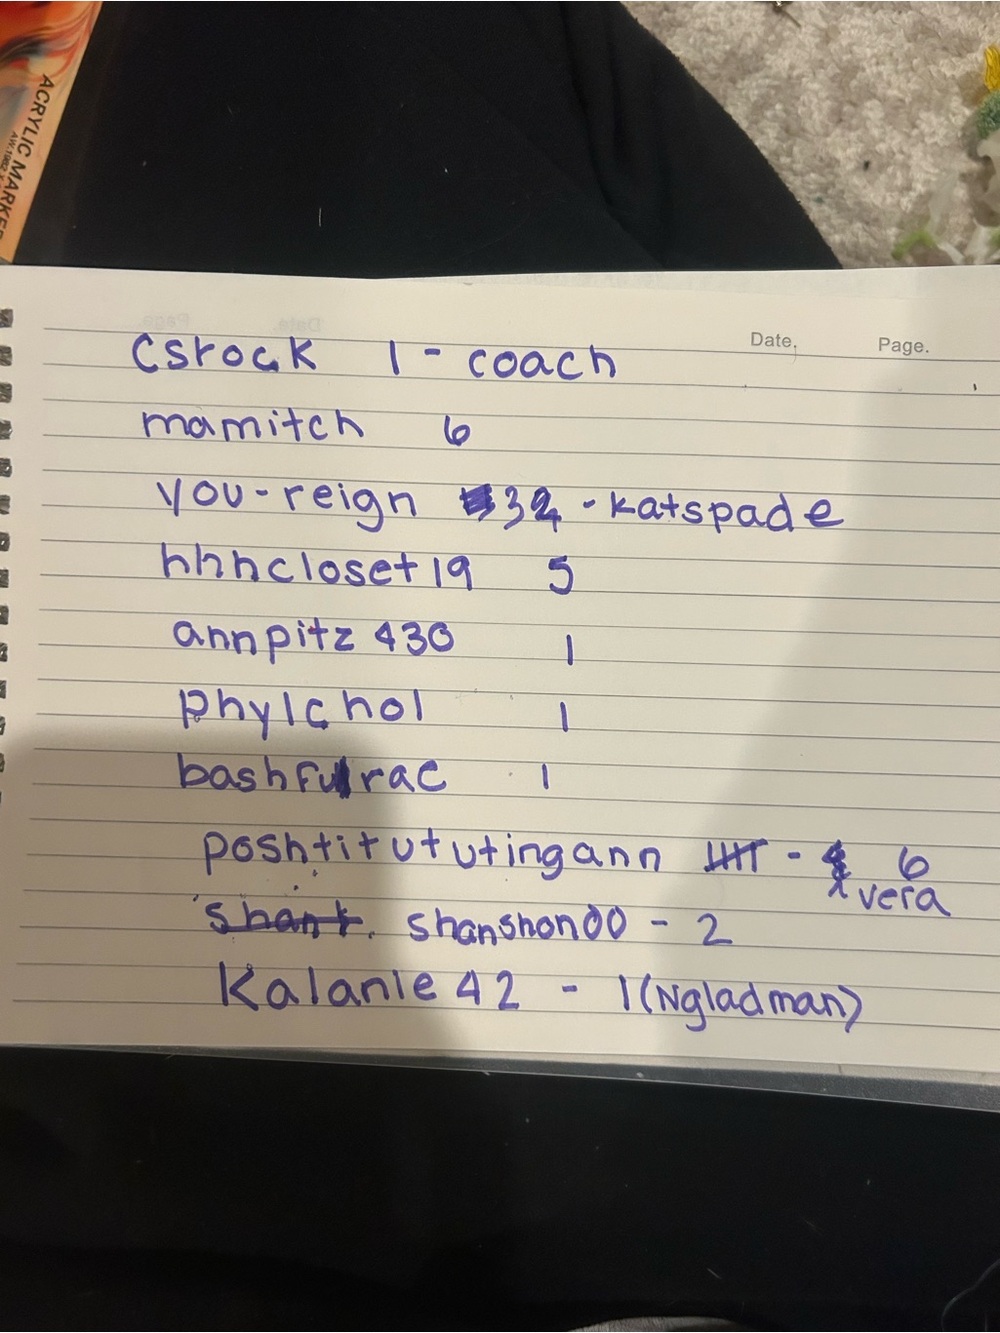 ACRYLIC MARKER
Date.
Page.
csrock 1 - coach
mamitch 6
you-reign 32 - katspade
hhhcloset19 5
annpitz 430 1
phylchol 1
bashfulrac 1
poshtitututingann - 6
vera
shant. shanshon00 - 2
Kalanie 42 - 1 (Ngladman)